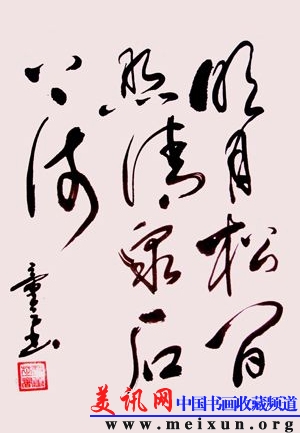 明月松间
照清泉石
上流
童 书
美讯网 中国书画收藏频道
www.meixun.org